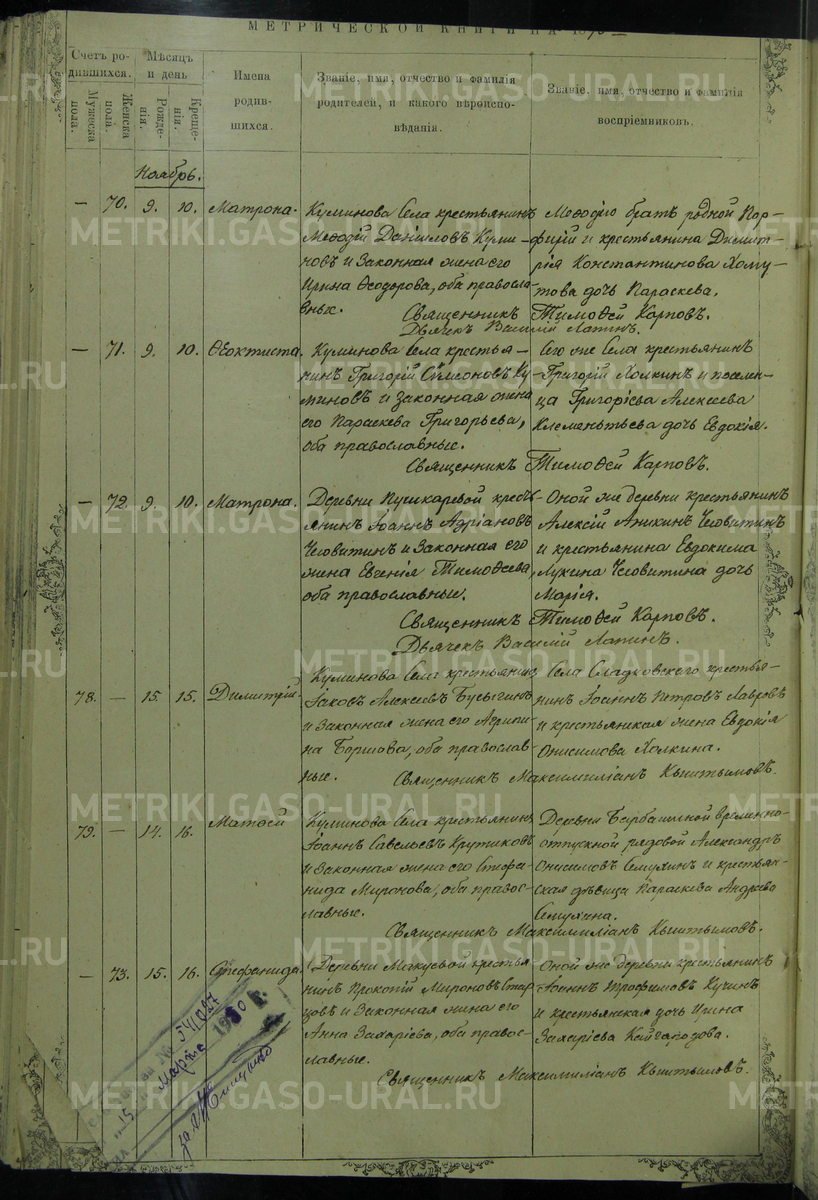 МЕТРИЧЕСКОЙ КНИГИ НА 18
Счетъ ро-
дившихся.
Мужеска
пола.
Женска
пола.
Мѣсяцъ
и день
Рожде-
нія.
Креще-
нія.
Имена
родив-
шихся.
Званіе, имя, отчество и фамилія
родителей, и какого вѣроиспо-
вѣданія.
Званіе, имя, отчество и фамилія
воспріемниковъ.
Ноябрь.
— 70. 9. 10. Матрона.
Куминова Села крестьянинъ
Меѳодій Даніиловъ Куми-
новъ и Законная жена его
Ирина Ѳеодорова, оба правосла-
вные.
Меѳодію братъ родной Пор-
фирій и крестьянина Димит-
рія Константинова Хому-
това дочь Параскева.
Священникъ Тимоѳей Карповъ.
Дьячекъ Василій Лапинъ.
— 71. 9. 10. Ѳеоктиста.
Куминова Села крестья-
нинъ Григорій Сѵмеоновъ Ку-
миновъ и законная жена
его Параскева Григорьева,
оба православные.
Того же Села крестьянинъ
Григорій Холкинъ и поселен-
ца Григорія Алексеева
Клементьева дочь Евдокія.
Священникъ Тимоѳей Карповъ.
— 72. 9. 10. Матрона.
Деревни Пушкаревой кресть-
янинъ Іоаннъ Адріановъ
Човитинъ и Законная его
жена Евгенія Тимоѳеева,
оба православные.
Оной же деревни крестьянинъ
Алексій Аникинъ Човитинъ
и крестьянина Евдокима
Лукина Човитина дочь
Марія.
Священникъ Тимоѳей Карповъ.
Дьячекъ Василій Лапинъ.
78. — 15. 15. Димитрій.
Куминова Села крестьянинъ
Іаковъ Алексеевъ Бусыгинъ
и Законная жена его Агрипи-
на, оба православ-
ные.
Села Сладковскаго крестья-
нинъ Іоаннъ Петровъ Лавровъ
и крестьянская жена Евдокія
Онисимова Холкина.
Священникъ Максимиліанъ Кыштымовъ.
79. — 14. 16. Матѳей
Куминова Села крестьянинъ
Іоаннъ Савельевъ Крутиковъ
и Законная жена его Стефа-
нида Миронова, оба правос-
лавные.
Деревни временно-
отпускной рядовой Александръ
Онисимовъ Семухинъ и крестьян-
ская дѣвица Параскева Андреева
Семухина.
Священникъ Максимиліанъ Кыштымовъ.
— 73. 15. 16. Стефанида.
Деревни Макуевой крестья-
нинъ Прокопій Мироновъ Стар-
цовъ и Законная жена его
Анна Захаріева, оба правос-
лавные.
Оной же деревни крестьянинъ
Іоаннъ Трофимовъ Кучинъ
и крестьянская дочь Ирина
Захаріева Кайгародова.
Священникъ Максимиліанъ Кыштымовъ.
541027
15 марта
METRIKI.GASO-URAL.RU